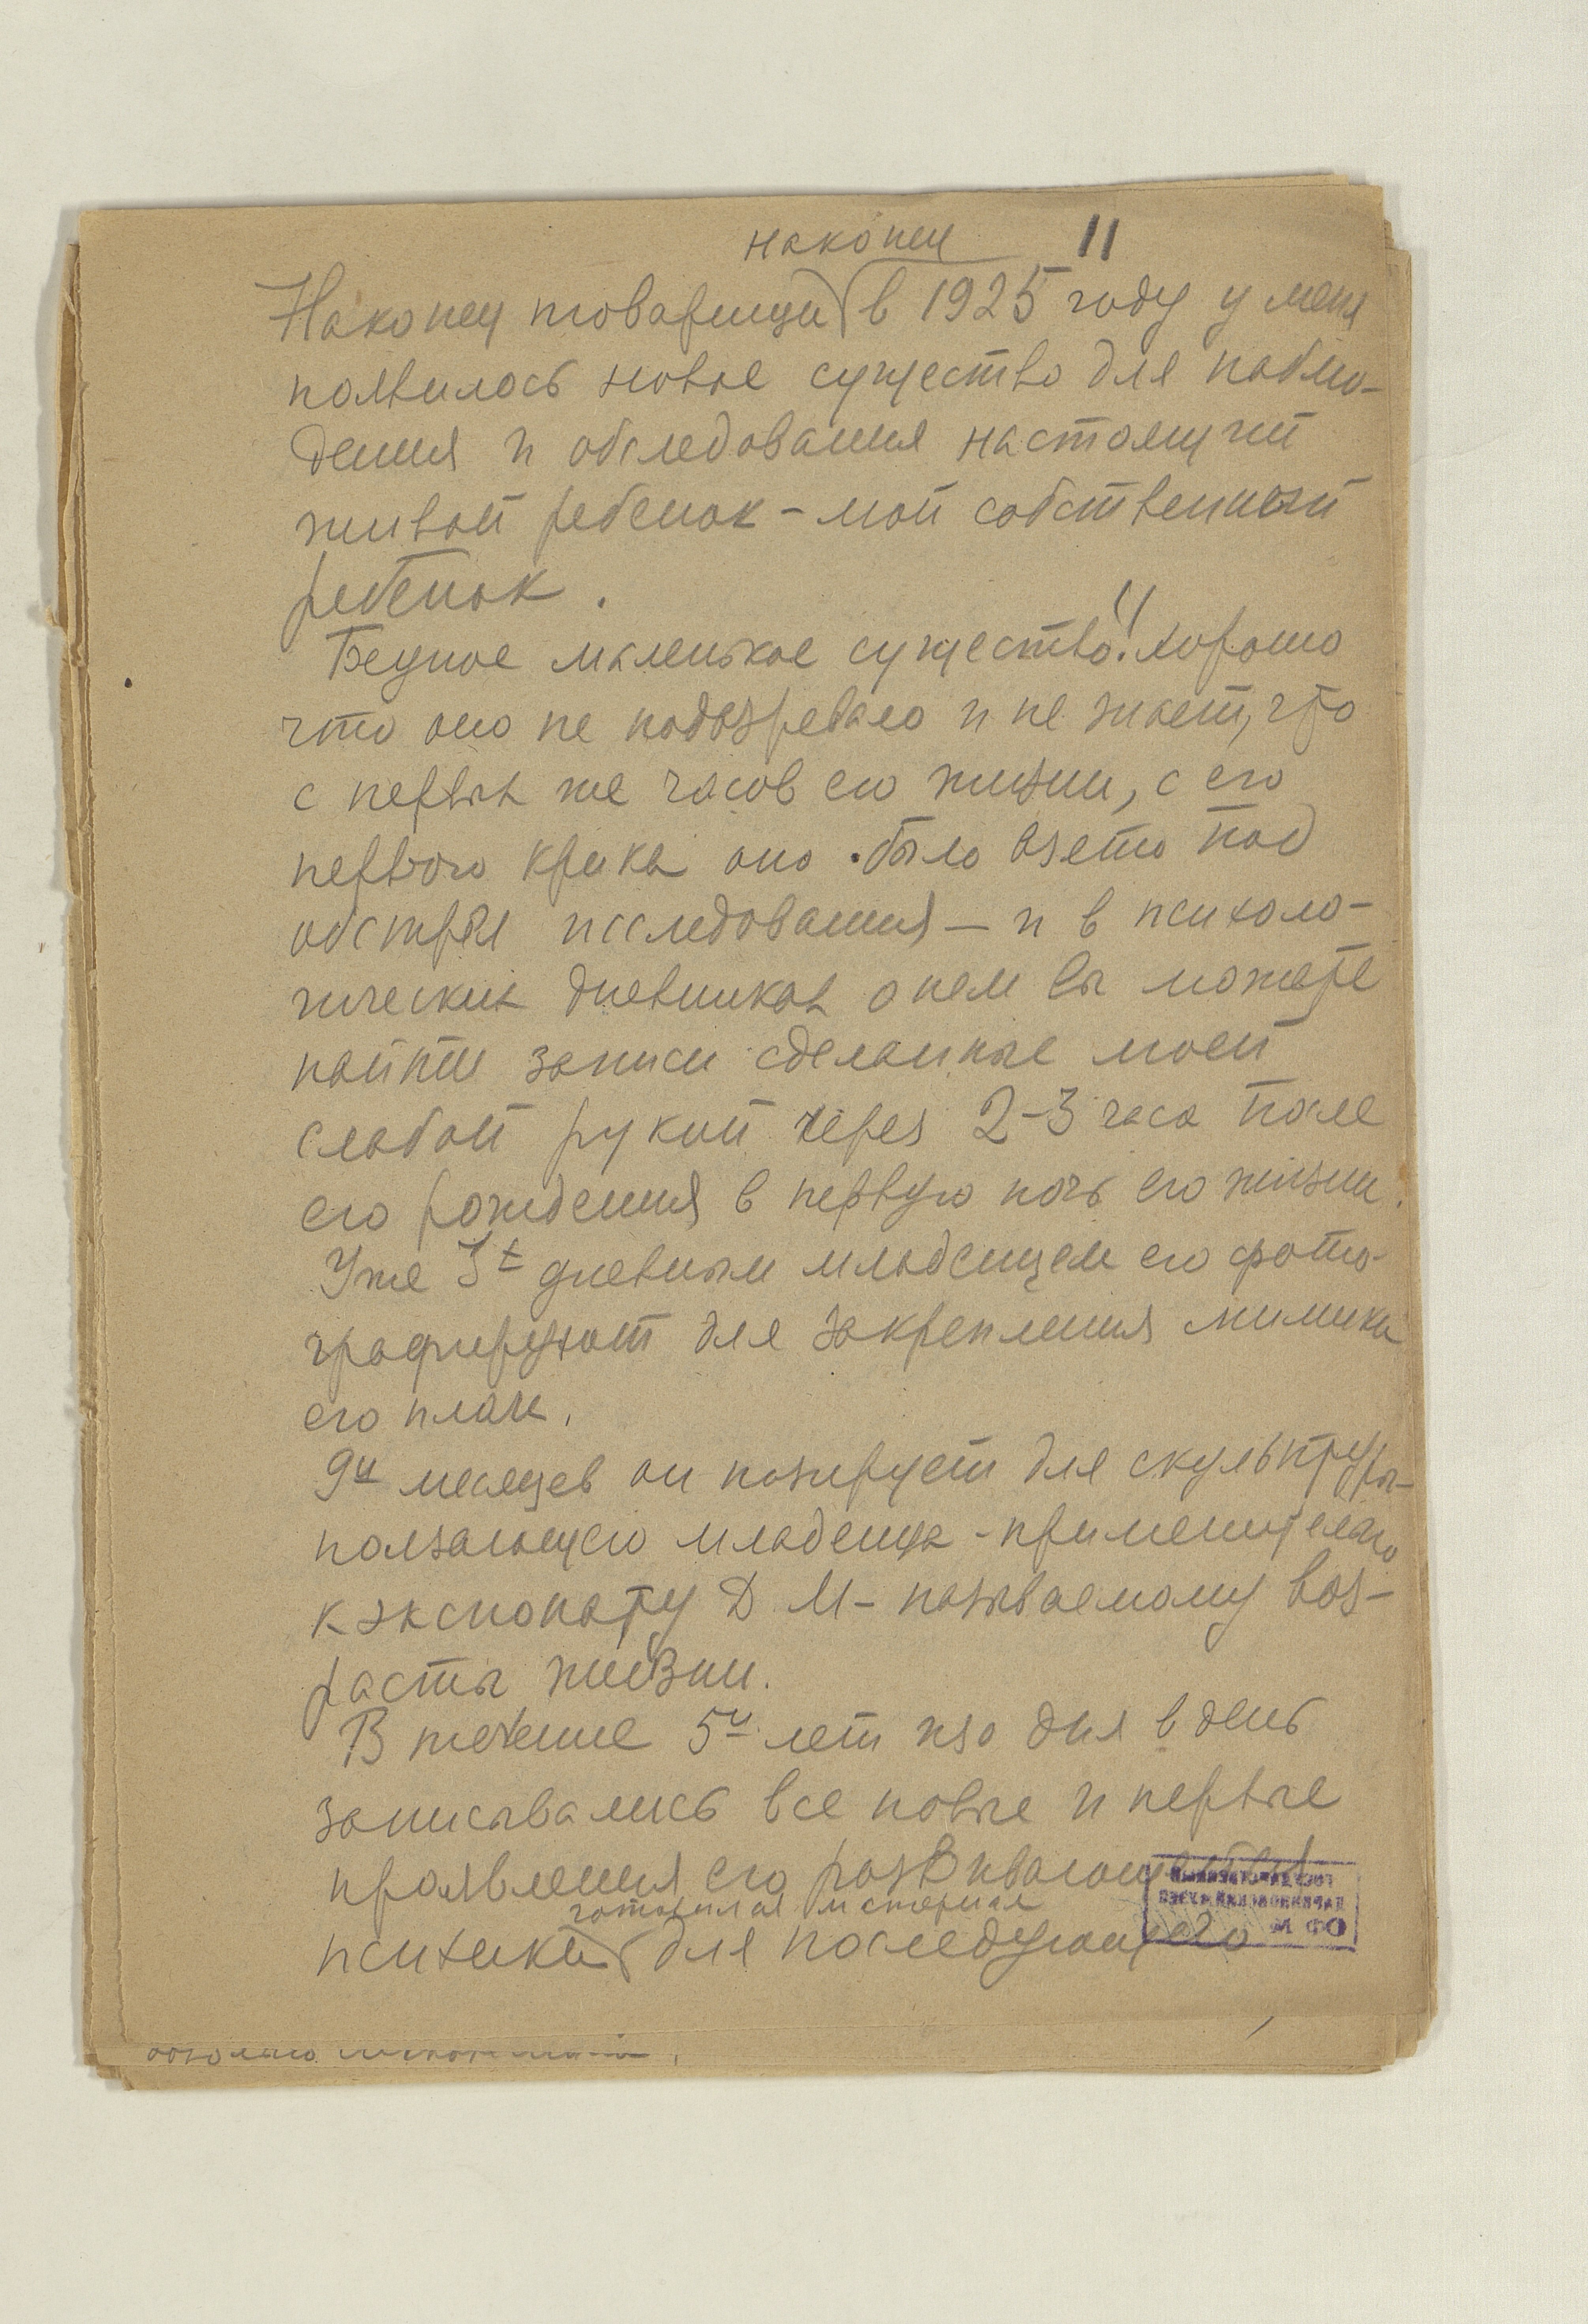 наконец 11
Наконец товарищи в 1925 году у меня
появилось новое существо для наблю-
дения и обследования настоящий
живой ребенок - мой собственный
ребенок.
Бедное маленькое существо!! хорошо
что оно не подозревало и не знает, что
с первых же часов его жизни, с его
первого крика оно было взято под
обстрел исследования — и в психоло-
гических дневниках о нем вы можете
найти записи сделанные моей
слабой рукой через 2-3 часа после
его рождения в первую ночь его жизни.
Уже дневным младенцем его фото-
графируют для закрепления мимики
его плача.
9и месяцев он позирует для скульптуры-
ползающего младенца - применительно
к экспонату Д М - называемому воз-
расты жизни.
В течение 5и лет изо дня в день
записывались все новые и первые
проявления его развивающейся
готовился материал
психики для последующего